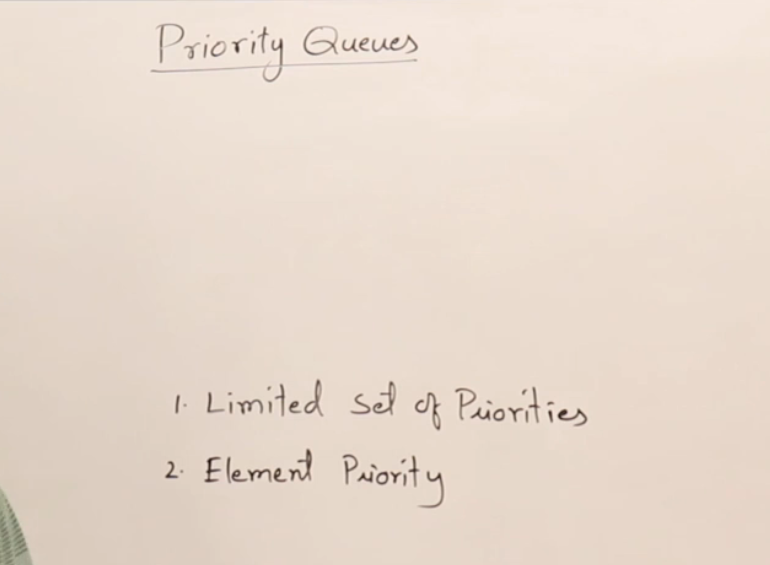 Priority Queues
1. Limited set of Priorities
2. Element Priority